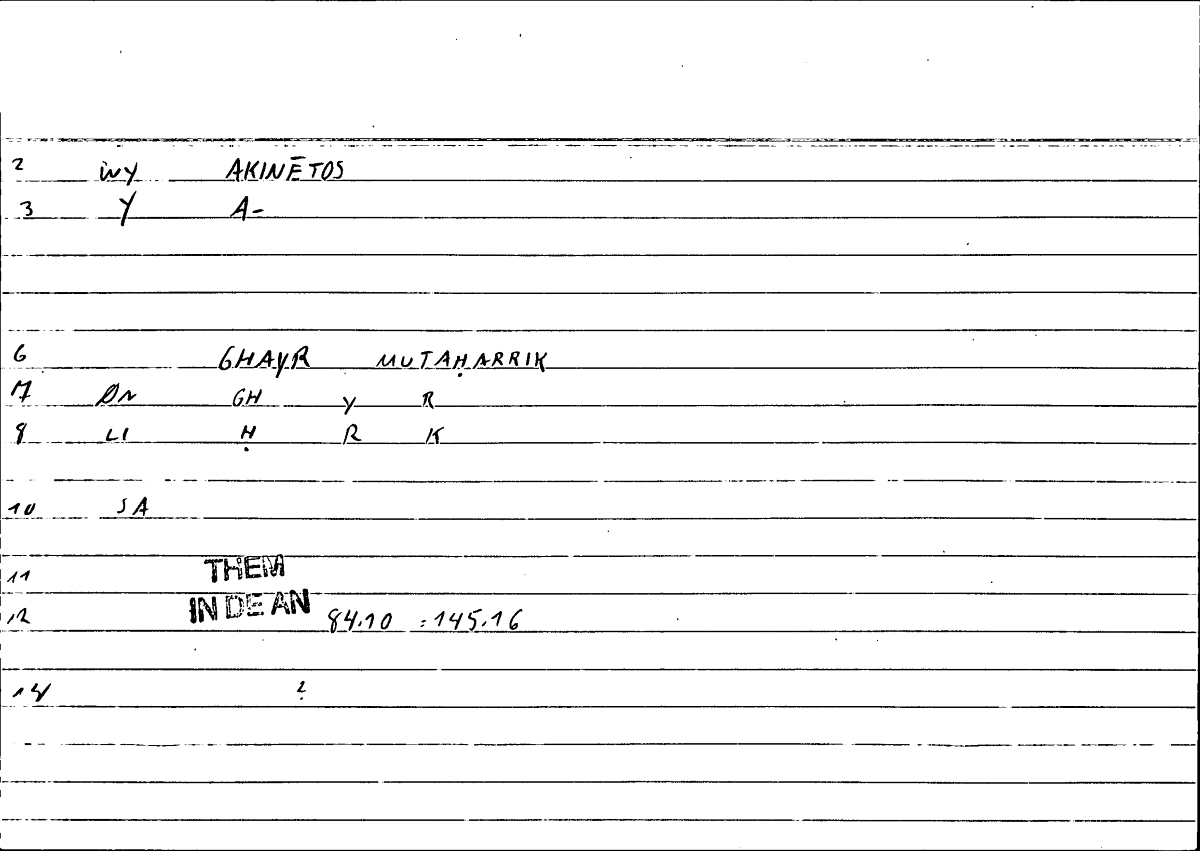 2 WY AKINĒTOS
3 Y A-
6 GHAYR MUTAḤARRIK
7 ON GH Y R
8 LI Ḥ R K
10 SA
11 THEM
12 IN DE AN 84.10 = 145.16
14 ?